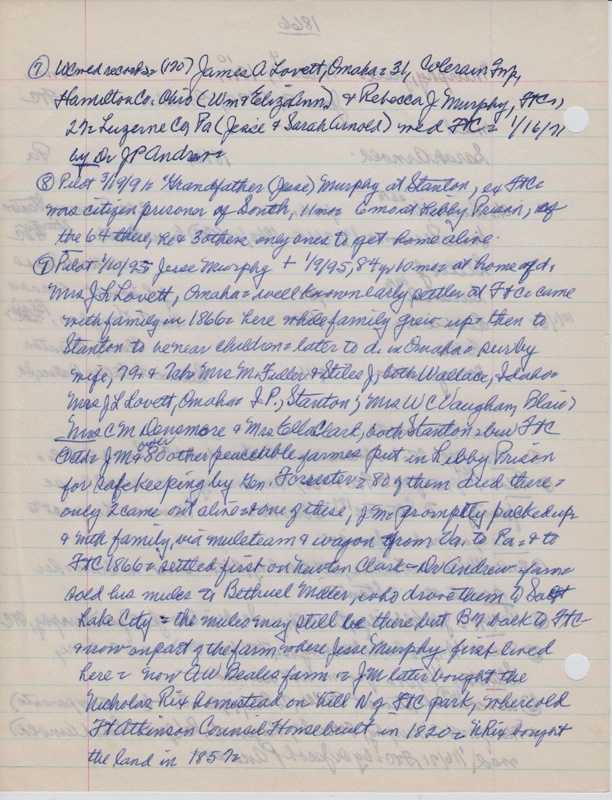 1866
⑦ WCmed records= (170) James A. Lovett, Omaha= 31, Colerain Twp,
Hamilton Co. Ohio (Wm & Eliza Ann) & Rebecca J. Murphy, FtC=,
22= Luzerne Co, Pa (Jesse & Sarah Arnold) med FtC= 1/16/71
by Dr JP Andrew=
⑧ Pilot 3/19/91= Grandfather (Jesse) Murphy at Stanton, ex FtC=
was citizen prisoner of South, 11 mos= 6 mo at Libby Prison, of
the 64 there, he & 3 others only ones to get home alive.
⑨ Pilot 1/10/95= Jesse Murphy + 1/9/95, 84y 10 mo= at home of d,
Mrs J L Lovett, Omaha= well known early settler at FtC= came
with family in 1866= here whole family grew up= then to
Stanton to be near children= later to d. in Omaha= surv by
wife, 79, & 7ch= Mrs M. Fuller & Stiles J, both Wallace, Idaho=
Mrs J L Lovett, Omaha= I.P., Stanton; Mrs W C Vaughan, Blair;
Mrs C M Densmore & Mrs Ella Clark, both Stanton= bur FtC
Cem= J M & over 80 other peaceable farmers put in Libby Prison
for safe keeping by Gen. Forrester= 80 of them died there=
only 2 came out alive= one of these, J M= promptly packed up
& with family, via muleteam & wagon from Va. to Pa= & to
FtC 1866= settled first on Newton Clark= Dr Andrew farm=
sold his mules to Bethuel Miller, who drove them to Salt
Lake City= the mules may still be there but BM back to FtC
& now on part of the farm where Jesse Murphy first lived
here= now AW Beales farm= J M later bought the
Nicholas Rix homestead on hill N of FtC park, where old
Ft Atkinson Council House built in 1820= N Rix bought
the land in 1857=